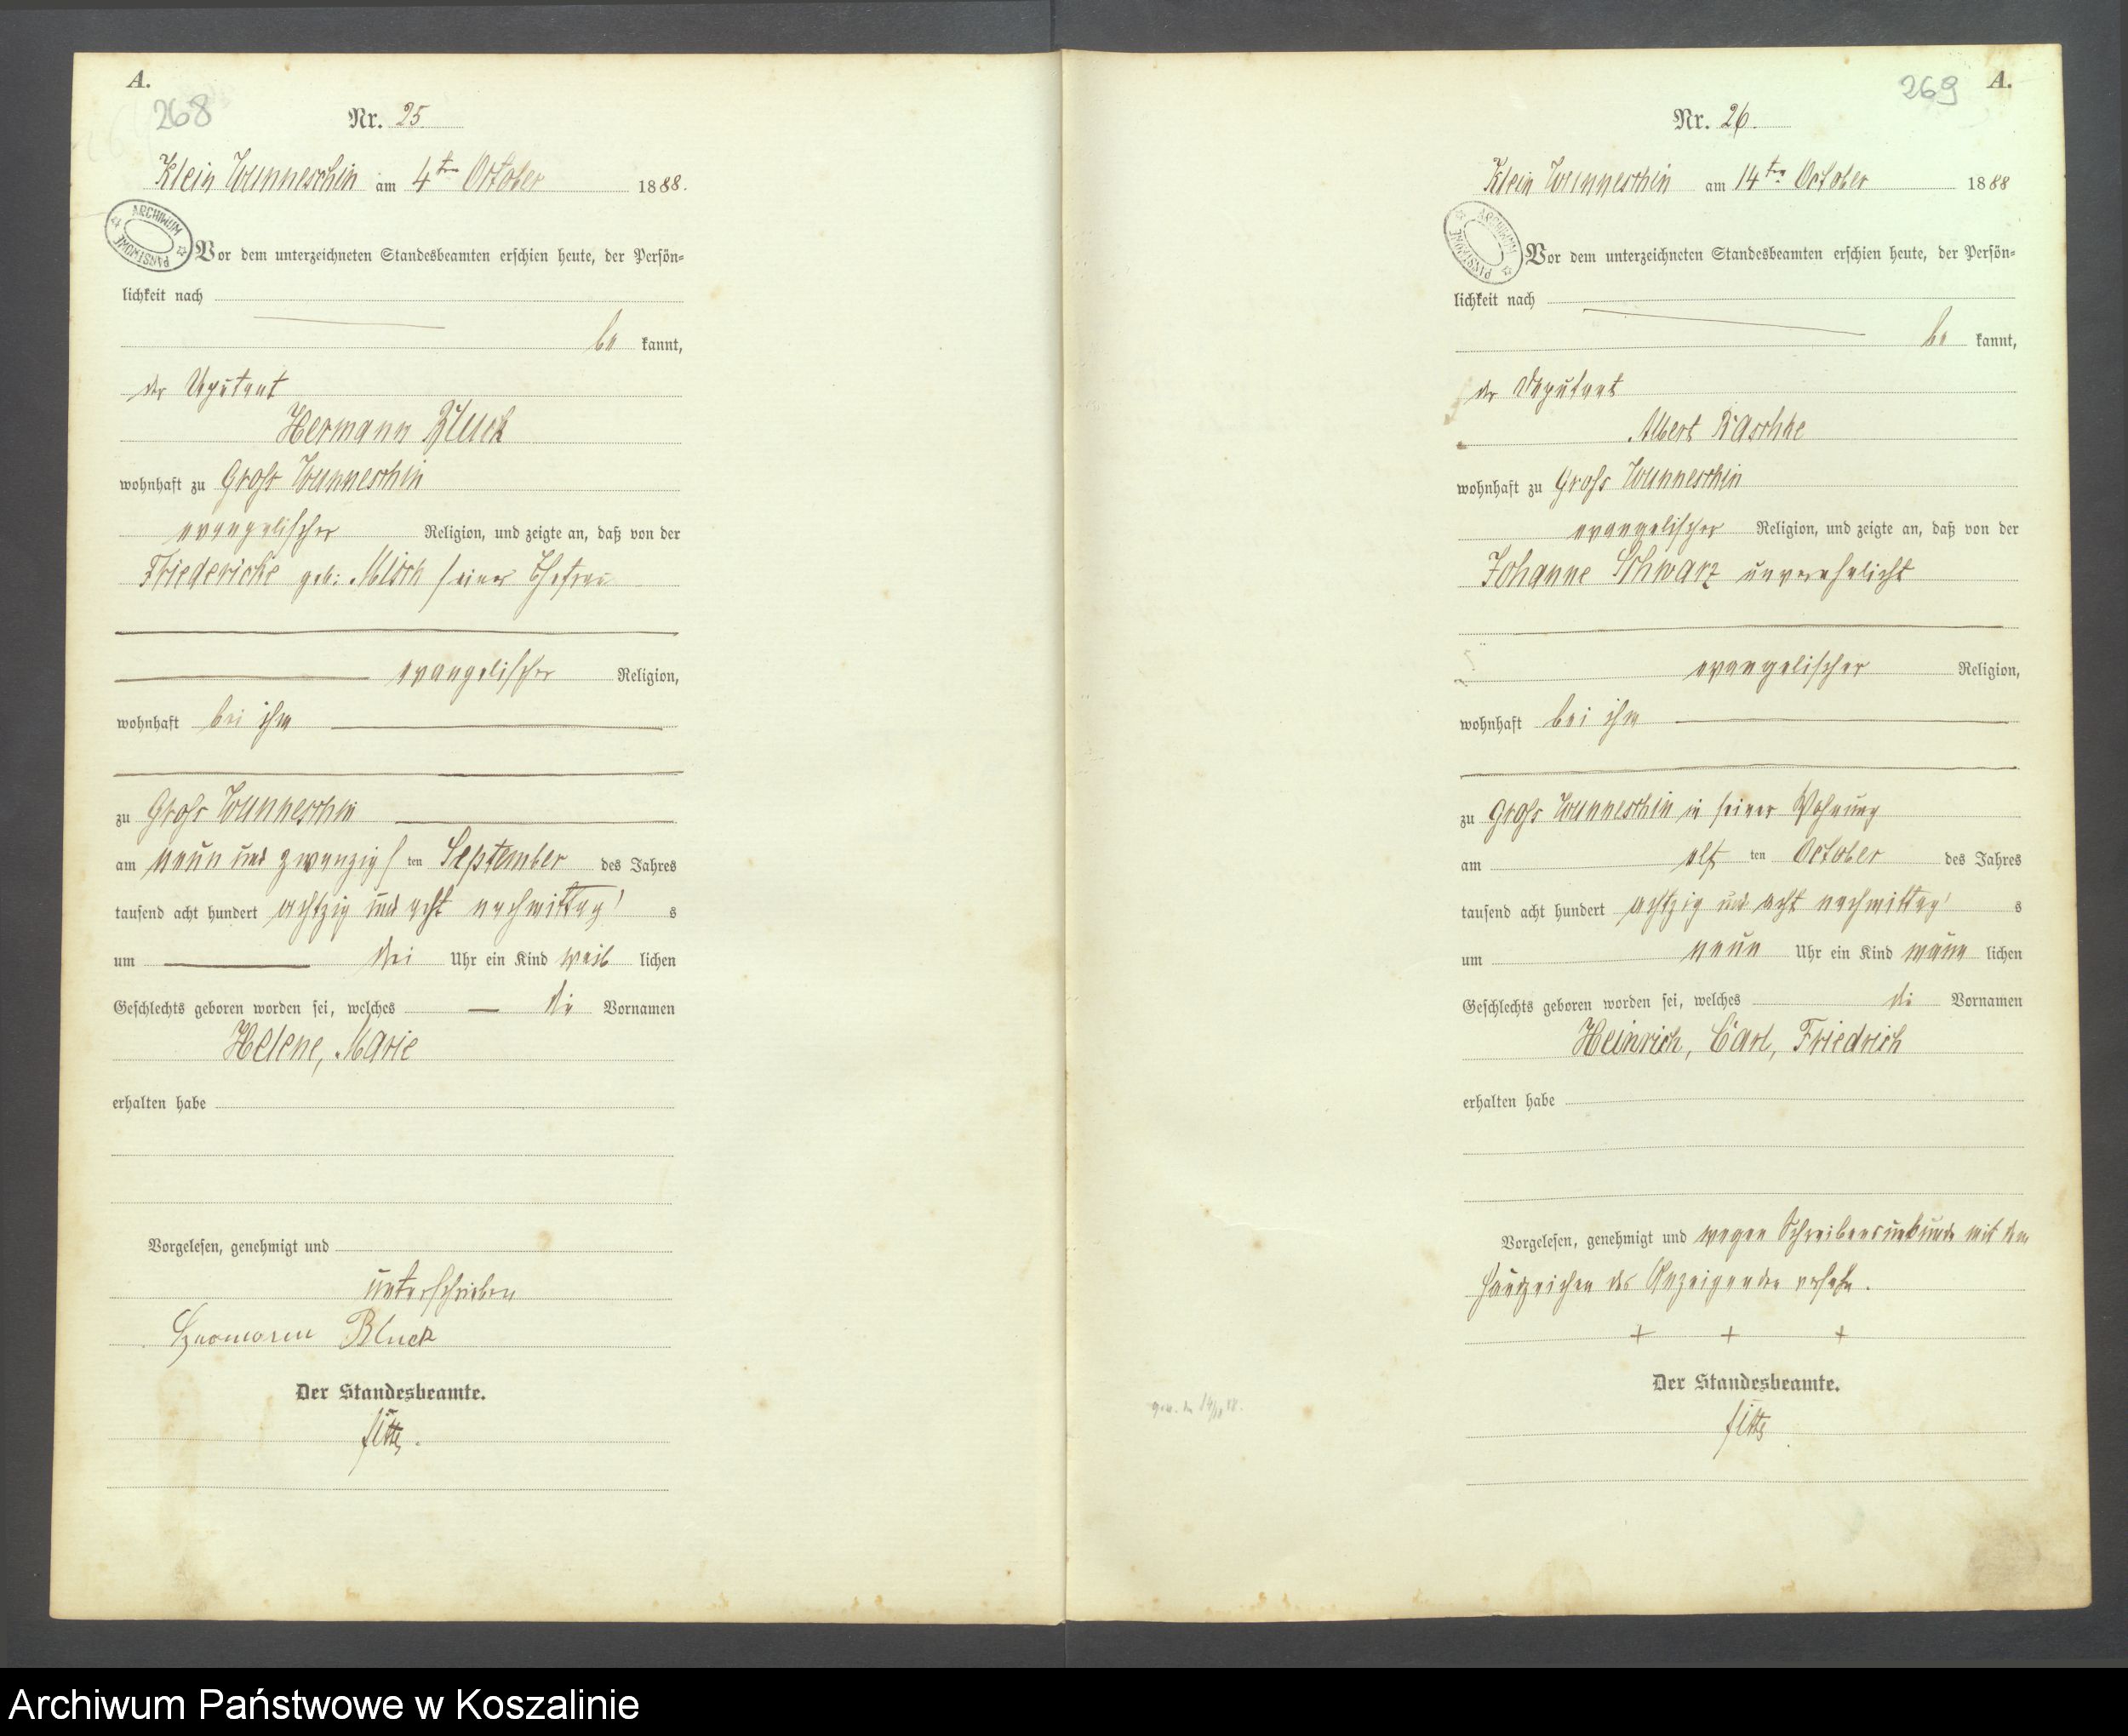 A.
268
Nr. 25
Klein Wunneschin am 4ten October 1888.
ARCHIWUM PAŃSTWOWE
Vor dem unterzeichneten Standesbeamten erschien heute, der Persön-
lichkeit nach
be kannt,
der Deputant
Hermann Bluck
wohnhaft zu Groß Wunneschin
evangelischer Religion, und zeigte an, daß von der
Friedericke geb: seiner Ehefrau
evangelischer Religion,
wohnhaft bei ihm
zu Groß Wunneschin
am neun und zwanzigs ten September des Jahres
tausend acht hundert achtzig und acht nachmittag s
um drei Uhr ein Kind weib lichen
Geschlechts geboren worden sei, welches die Vornamen
Helene, Marie
erhalten habe
Vorgelesen, genehmigt und
unterschrieben
Bluck
Der Standesbeamte.
A.
269
Nr. 26.
Klein Wunneschin am 14ten October 1888
ARCHIWUM PAŃSTWOWE
Vor dem unterzeichneten Standesbeamten erschien heute, der Persön-
lichkeit nach
be kannt,
der Deputant
Albert Raschke
wohnhaft zu Groß Wunneschin
evangelischer Religion, und zeigte an, daß von der
Johanne Schwarz unverehelicht
evangelischer Religion,
wohnhaft bei ihm
zu Groß Wunneschin in seiner Wohnung
am elf ten October des Jahres
tausend acht hundert achtzig und acht nachmittag s
um neun Uhr ein Kind männ lichen
Geschlechts geboren worden sei, welches die Vornamen
Heinrich, Carl, Friedrich
erhalten habe
Vorgelesen, genehmigt und wegen Schreibensunkunde mit dem
Handzeichen des Anzeigenden versehn.
+ + +
Der Standesbeamte.
Archiwum Państwowe w Koszalinie